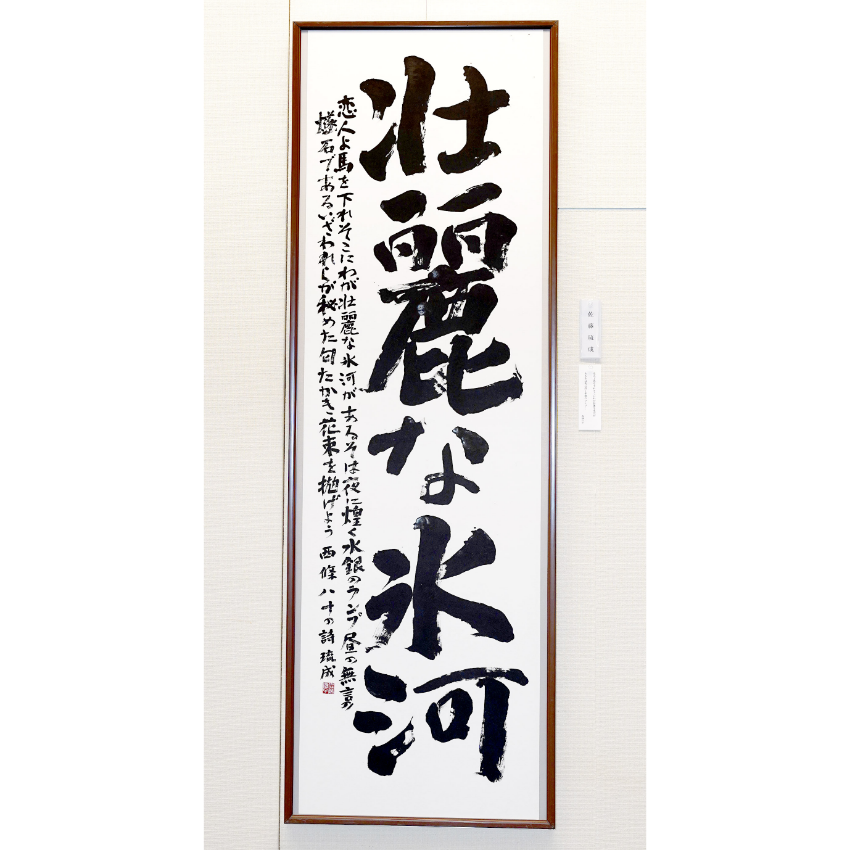 壮麗な氷河
恋人よ馬を下れそこにわが壮麗な氷河があるそは夜に煌く水銀のランプ昼の無言の
燧石であるいざわれらが秘めた匂たかき花束を抛げよう 西條八十の詩 琉成